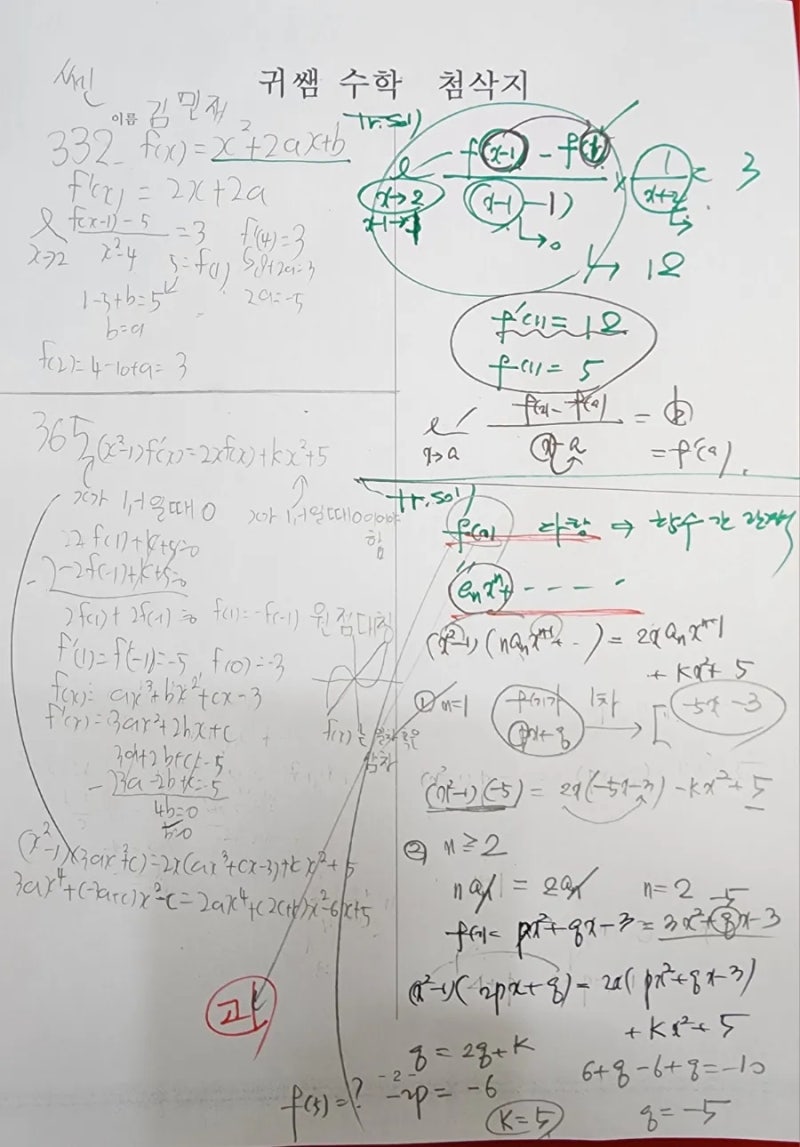 귀쌤 수학 첨삭지
이름 김민재
332. f(x) = x²+2ax+b
f'(x) = 2x+2a
x→2 f(x-1)-5 / x²-4 = 3
f'(4)=3
5=f(1)
8+2a=3
1-5+b=5
2a=-5
b=9
f(2)=4-10+9=3
tr.sol)
x→2 f(x-1) - f(1) / (x-1-1) × 1/x+2 = 3
x-1→1
→0
→ 12
f'(1) = 12
f(1) = 5
x→a f(x)-f(a) / x-a = = f'(a).
365. (x²-1)f'(x)=2xf(x)+kx²+5
x가 1,-1일때 0
x가 1,-1일때 0이어야 함
2f(1)+k+5=0
- -2f(-1)+k+5=0
2f(1)+2f(-1)=0 f(1)=-f(-1) 원점대칭
f'(1)=f'(-1)=-5 f(0)=-3
f(x)= ax³+bx²+cx-3
f'(x)=3ax²+2bx+c
3a+2b+c=-5
- 3a-2b+c=-5
4b=0
b=0
(x²-1)(3ax²+c)=2x(ax³+cx-3)+kx²+5
3ax⁴+(-3a+c)x²-c=2ax⁴+(2c+k)x²-6x+5
tr.sol)
f(x) 다항 ⇒ 함수 간 관계식
aₙxⁿ+ - - - -
(x²-1)(naₙxⁿ⁻¹+..) = 2xaₙxⁿ⁺¹
+ kx²+5
① n=1 f(x)가 1차 → -5x-3
px+q
(x²-1)(-5) = 2x(-5x-3) - kx²+5
② n≥2
naₙ = 2aₙ n=2
-5
f(x)= px²+qx-3 = 3x²+qx-3
(x²-1)(2px+q) = 2x(px²+qx-3)
+ kx²+5
q = 2q+k
6+q-6+q=-10
-2p = -6
k=5
q=-5
f(3)=?